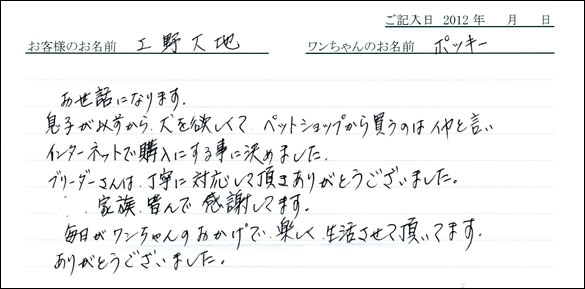 ご記入日 2012年 月 日
お客様のお名前 工野大地 ワンちゃんのお名前 ポッキー
お世話になります。
息子が以前から、犬を欲しくて、ペットショップから買うのはイヤと言い
インターネットで購入にする事に決めました。
ブリーダーさんは、丁寧に対応して頂きありがとうございました。
家族、皆んで感謝してます。
毎日がワンちゃんのおかげで、楽しく生活させて頂いてます。
ありがとうございました。